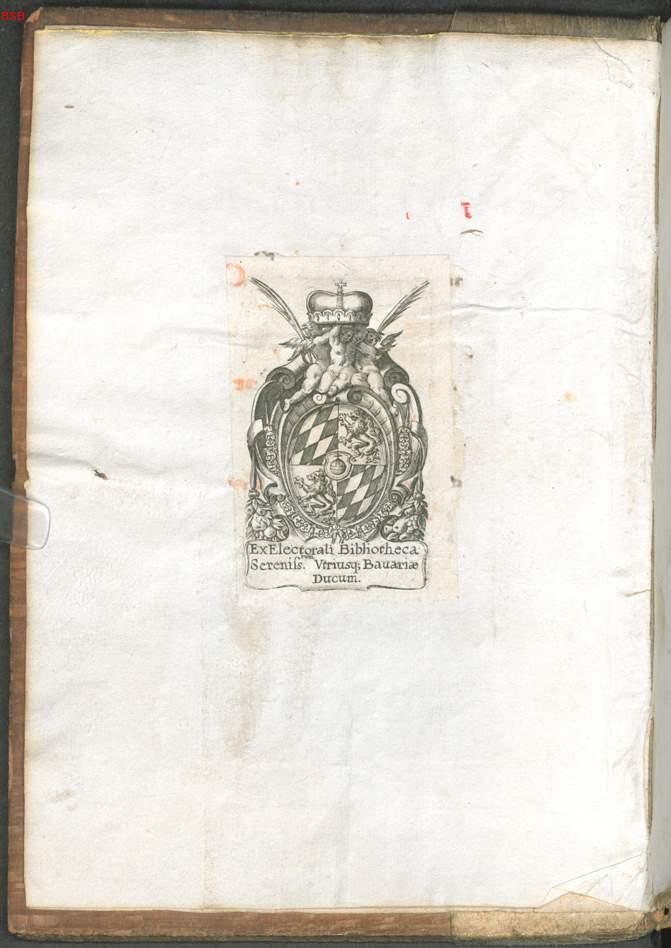 BSB
Ex Electorali Bibliotheca
Sereniſs. rum Vtriusq; Bauariæ
Ducum.